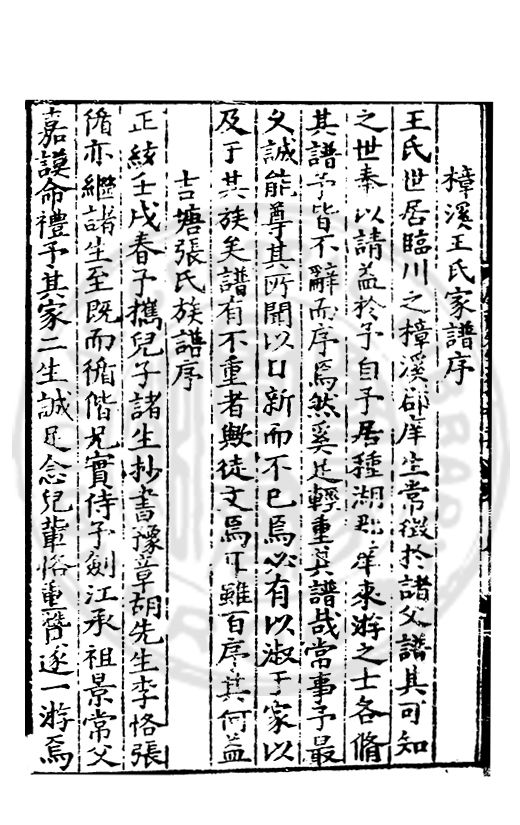 樟溪王氏家譜序
王氏世居臨川之樟溪郡庠生常徵於諸父譜其可知
之世奉以請益於予自予居種湖郡庠來游之士各脩
其譜予皆不辭而序焉然奚足輕重其譜哉常事予最
久誠能尊其所聞以日新而不已焉必有以淑于家以
及于其族矣譜有不重者歟徒文焉耳雖百序其何益
吉塘張氏族譜序
正統壬戌春予攜兒子諸生抄書豫章胡先生李恪張
循亦繼諸生至既而循偕兄實侍予劍江承祖景常父
嘉謨命禮予其家二生誠足念兒輩恪重贊遂一游焉